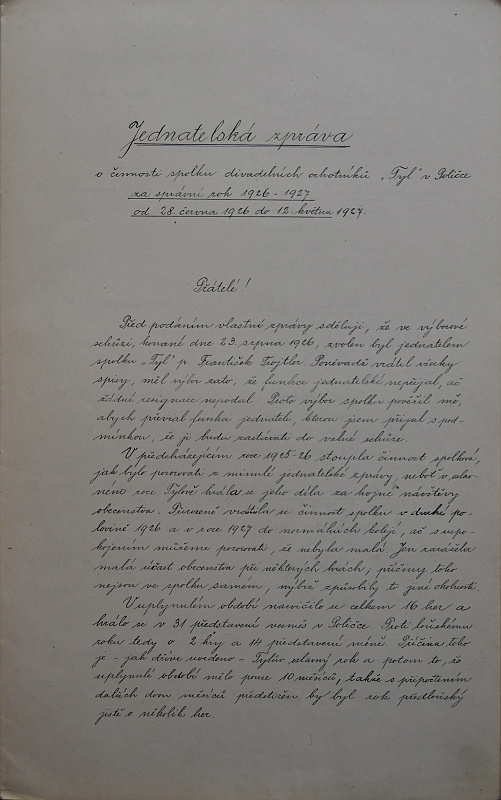 Jednatelská zpráva
o činnosti spolku divadelních ochotníků „Tyl" v Poličce
za správní rok 1926 - 1927
od 28. června 1926 do 12. května 1927.
Přátelé!
Před podáním vlastní zprávy sděluji, že ve výborové
schůzi, konané dne 23. srpna 1926, zvolen byl jednatelem
spolku „Tyl" p. František Trojtler. Poněvadž vrátil všecky
spisy, měl výbor zato, že funkce jednatelské nepřijal, ač
žádné resignace nepodal. Proto výbor spolku pověřil mě,
abych převzal funkci jednatele, kterou jsem přijal s pod-
mínkou, že ji budu zastávati do valné schůze.
V předcházejícím roce 1925-26 stoupla činnost spolková,
jak bylo porozuměti z minulé jednatelské zprávy, neboť v slav-
ném roce Tylově hrála se jeho díla za hojné návštěvy
obecenstva. Přirozeně vrátila se činnost spolku v druhé po-
lovině 1926 a v roce 1927 do normálních kolejí, ač s uspo-
kojením můžeme pozorovati, že nebyla malá. Jen zarážela
malá účast obecenstva při některých hrách; příčiny toho
nejsou ve spolku samém, nýbrž způsobily to jiné okolnosti.
V uplynulém období nacvičilo se celkem 16 her a
hrálo se v 31 představení vesměs v Poličce. Proti loňskému
roku tedy o 2 hry a 14 představení méně. Příčina toho
je - jak dříve uvedeno - Tylův slavný rok a potom to, že
uplynulé období mělo pouze 10 měsíců, takže s připočtením
dalších dvou měsíců předstižen by byl rok předloňský
jistě o několik her.